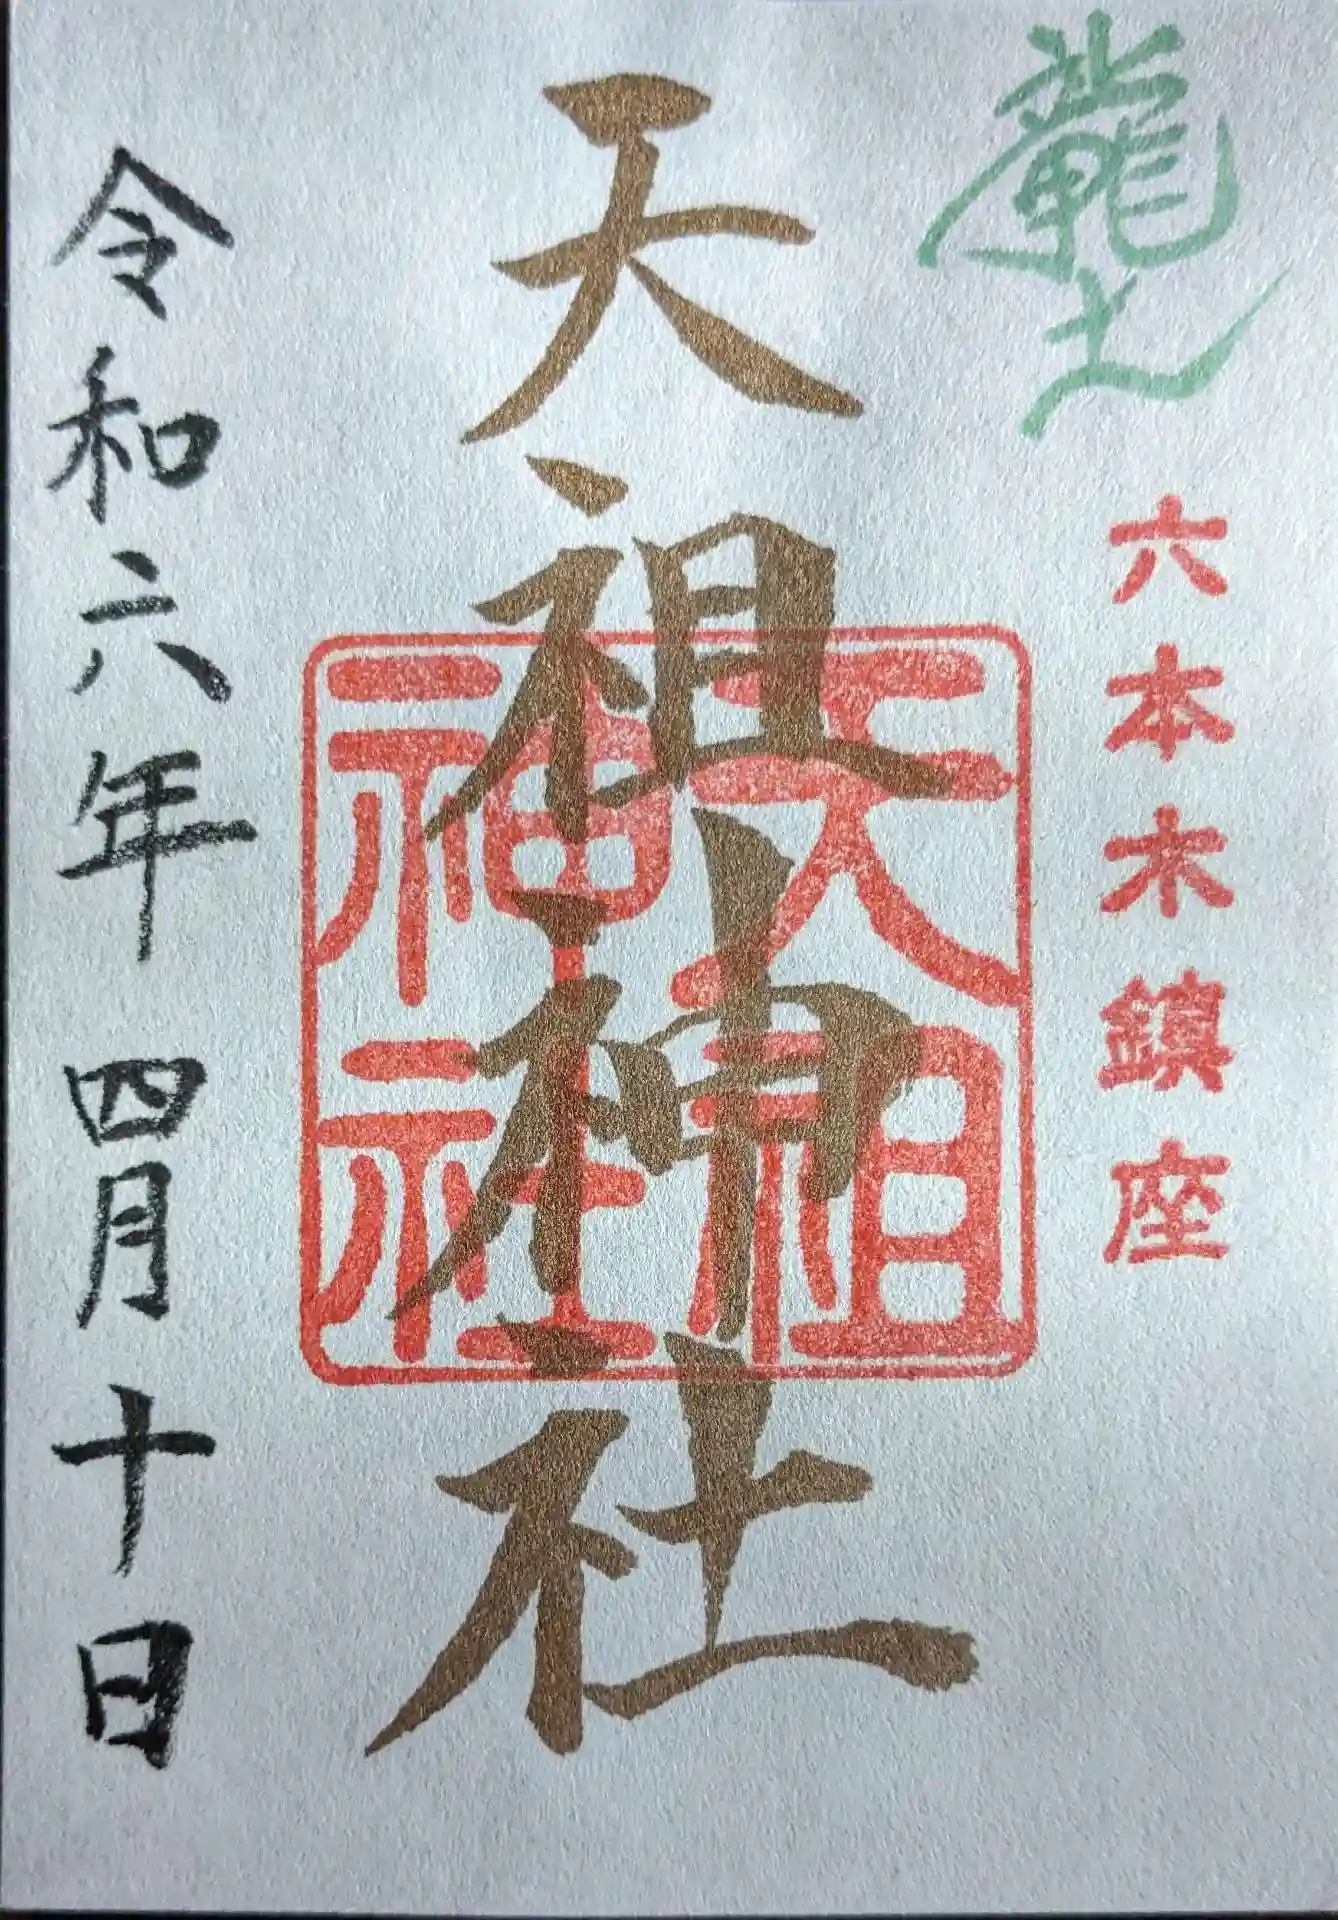 龍土
六本木鎮座
天祖神社
天祖
神社
令和六年四月十日